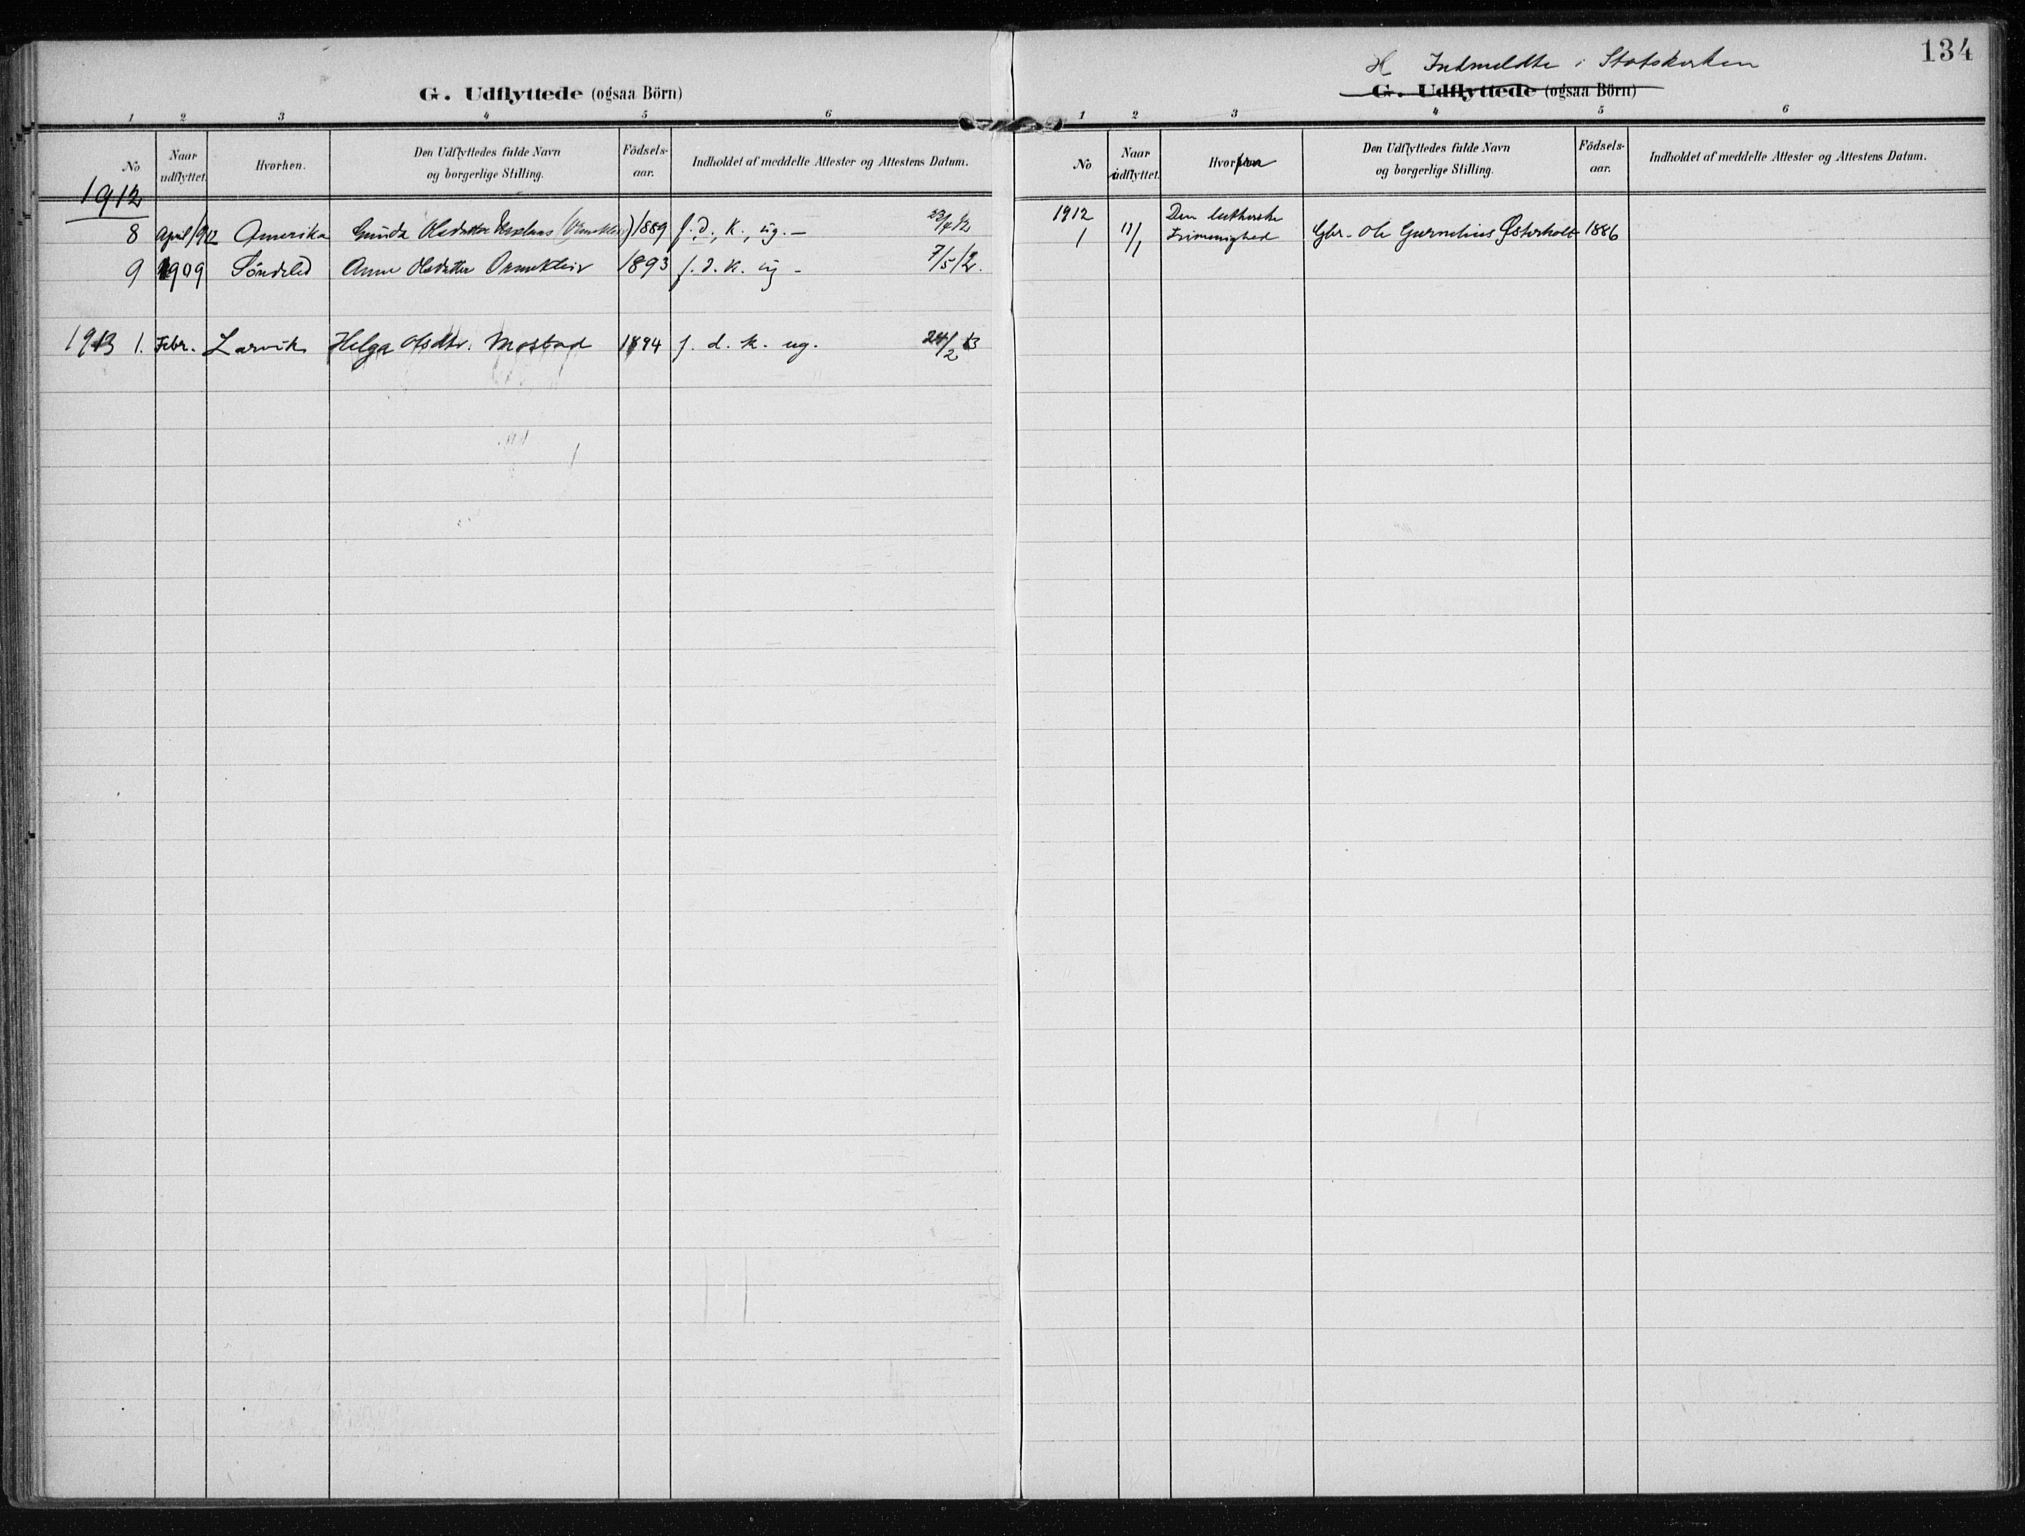 G. Udflyttede (ogsaa Börn)
1 2 3 4 5 6
No Naar udflyttet. Hvorhen. Den Udflyttedes fulde Navn og borgerlige Stilling. Födsels-aar. Indholdet af meddelte Attester og Attestens Datum.
1912
8 April/912 Amerika Gunda Olsdatter 1889 f., d., k., ug. — 23/4 12
9 1909 Söndeled Anne Olsdatter Ormekleiv 1893 f. d. k. ug — 7/5 12.
1913 1. Febr. Larvik Helga Olsdtr. Mostad 1894 f. d. k. ug. 24/2 13
134
H Indmeldte i Statskirken
G. Udflyttede (ogsaa Börn)
1 2 3 4 5 6
No Naar udflyttet. Hvorfra Den Udflyttedes fulde Navn og borgerlige Stilling. Födsels-aar. Indholdet af meddelte Attester og Attestens Datum.
1912 Den lutherske
1 Frimenighed Gbr. Ole Gurnelius Østerholt 1886